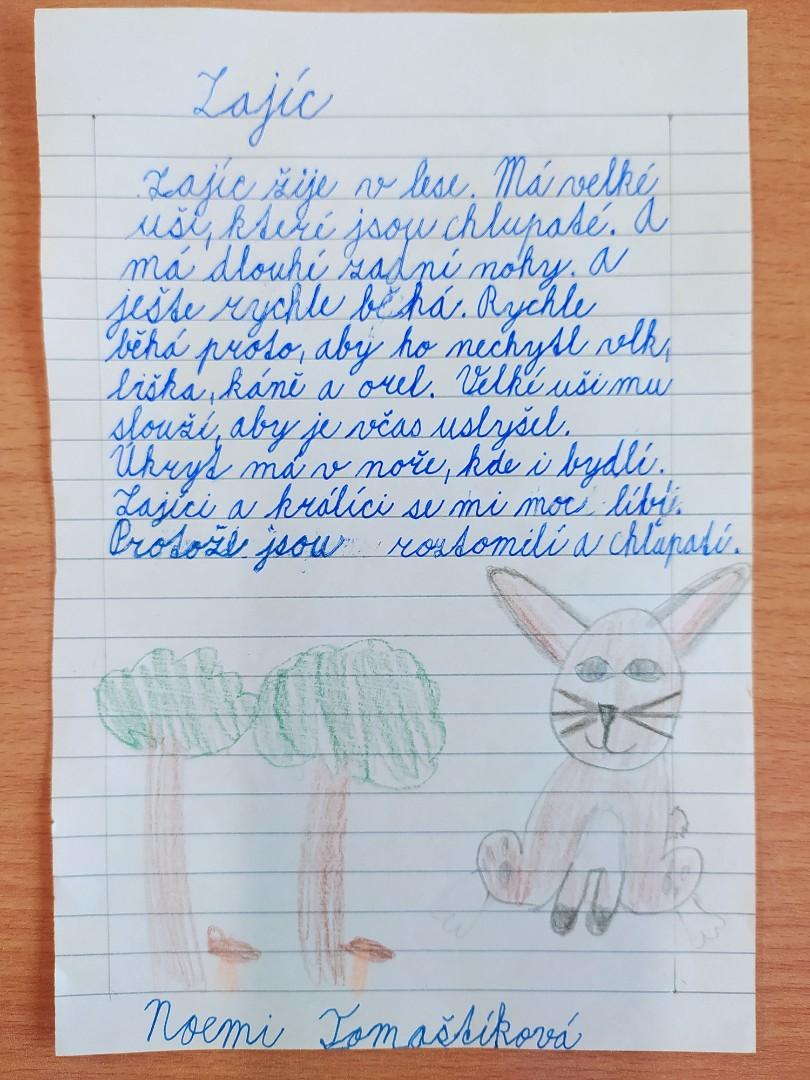 Zajíc
Zajíc žije v lese. Má velké
uši, které jsou chlupaté. A
má dlouhé zadní nohy. A
ješte rychle běhá. Rychle
běhá proto, aby ho nechytl vlk,
liška, káně a orel. Velké uši mu
slouží, aby je včas uslyšel.
Úkryt má v noře, kde i bydlí.
Zajíci a králíci se mi moc líbí.
Protože jsou roztomilí a chlupatí.
Noemi Tomaštíková